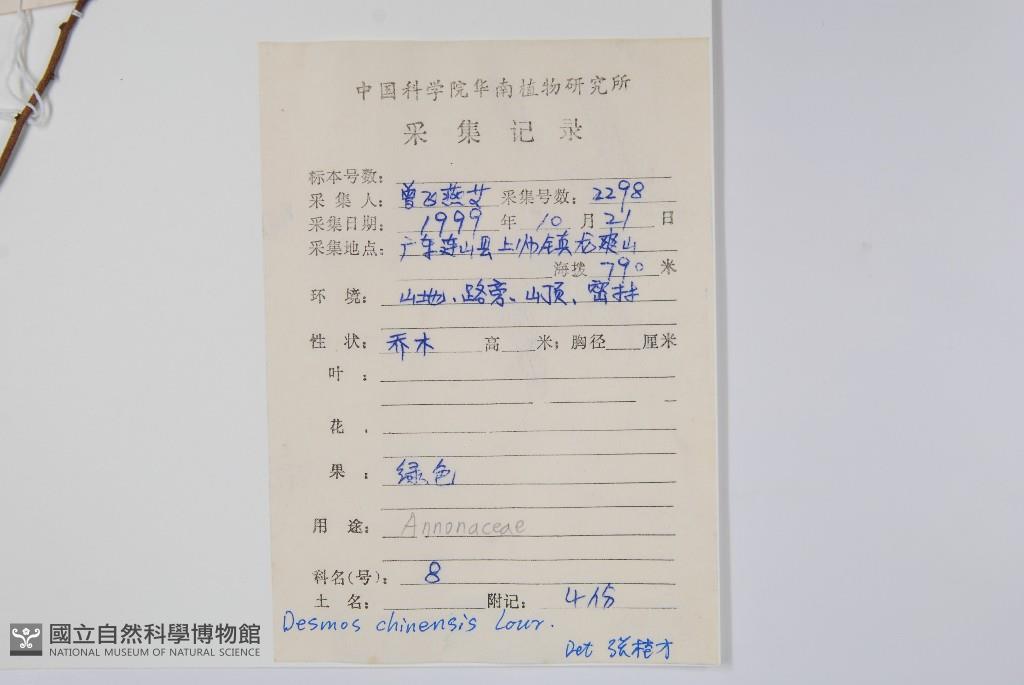 中国科学院华南植物研究所
采集记录
标本号数：
采集人：曾飞燕 采集号数：2298
采集日期：1999年10月21日
采集地点：广东连山县上帅镇
海拨 790 米
环境：山地、路旁、山顶、密林
性状：乔木 高 米；胸径 厘米
叶：
花
果：绿色
用途：Annonaceae
科名(号)：8
土名： 附记：4份
Desmos chinensis Lour.
Det 张桂才
國立自然科學博物館
NATIONAL MUSEUM OF NATURAL SCIENCE